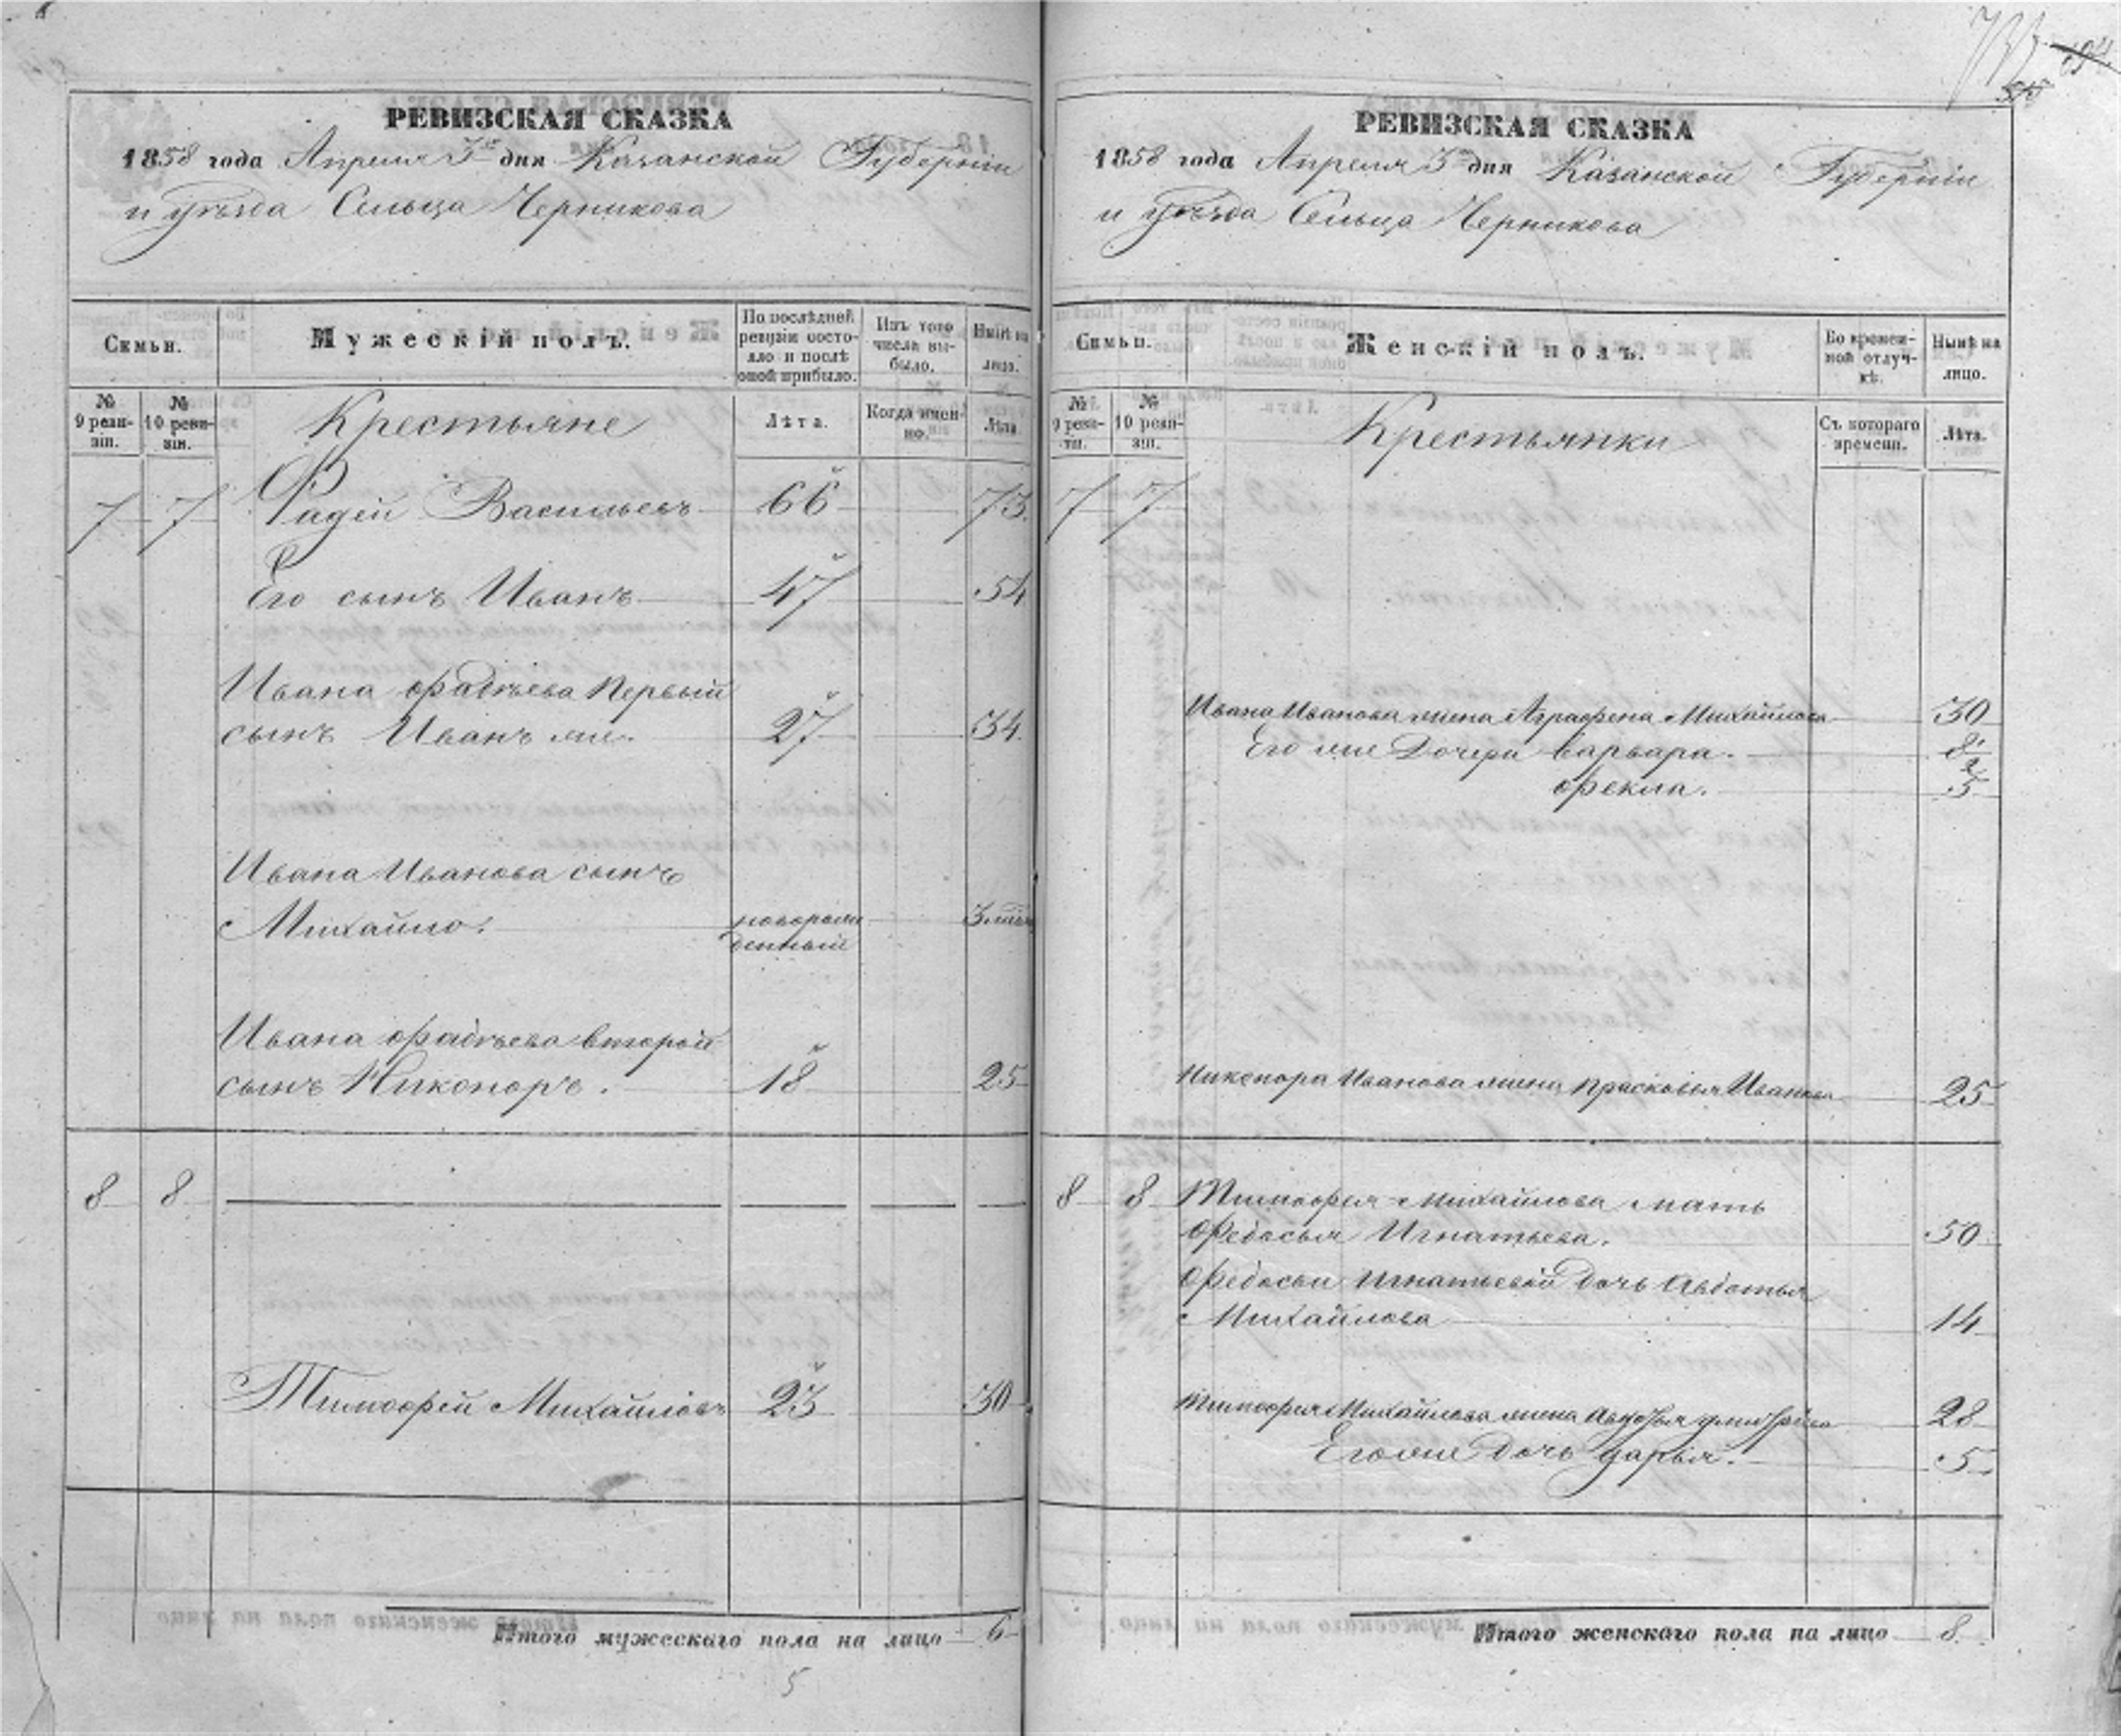 РЕВИЗСКАЯ СКАЗКА
1858 года Апреля 3го дня Казанской Губернии
и уѣзда Сельца Черникова
Семьи.
Мужескій полъ.
По послѣдней ревизіи состояло и послѣ оной прибыло.
Изъ того числа выбыло.
Нынѣ на лицо.
№ 9 ревизіи.
№ 10 ревизіи.
Крестьяне
Лѣта.
Когда именно.
Лѣта
7 7 Фадей Васильевъ 66 73
Его сынъ Иванъ 47 54
Ивана Фадѣева Первый
сынъ Иванъ же. 27 34
Ивана Иванова сынъ
Михайло. новорожденный 3
Ивана Фадѣева второй
сынъ Никоноръ. 18 25
8 8
Тимофей Михайловъ 23 30
Итого мужескаго пола на лицо 6
5
РЕВИЗСКАЯ СКАЗКА
1858 года Апреля 3го дня Казанской Губерніи
и уѣзда Сельца Черникова
Семьи.
Женскій полъ.
Во временной отлучкѣ.
Нынѣ на лицо.
№ 9 ревизіи.
№ 10 ревизіи.
Крестьянки
Съ котораго времени.
Лѣта.
7 7
Ивана Иванова жена Аграфена Михайлова 30
Его же Дочери Варвара. 8
Фекла. 5
Никонора Иванова жена Прасковья Иванова 25
8 8 Тимофея Михайлова мать
Федосья Игнатьева. 50
Федосьи Игнатьевой дочь Авдотья
Михайлова 14
Тимофея Михайлова жена 28
Его же дочь Дарья. 5
Итого женскаго пола на лицо 8